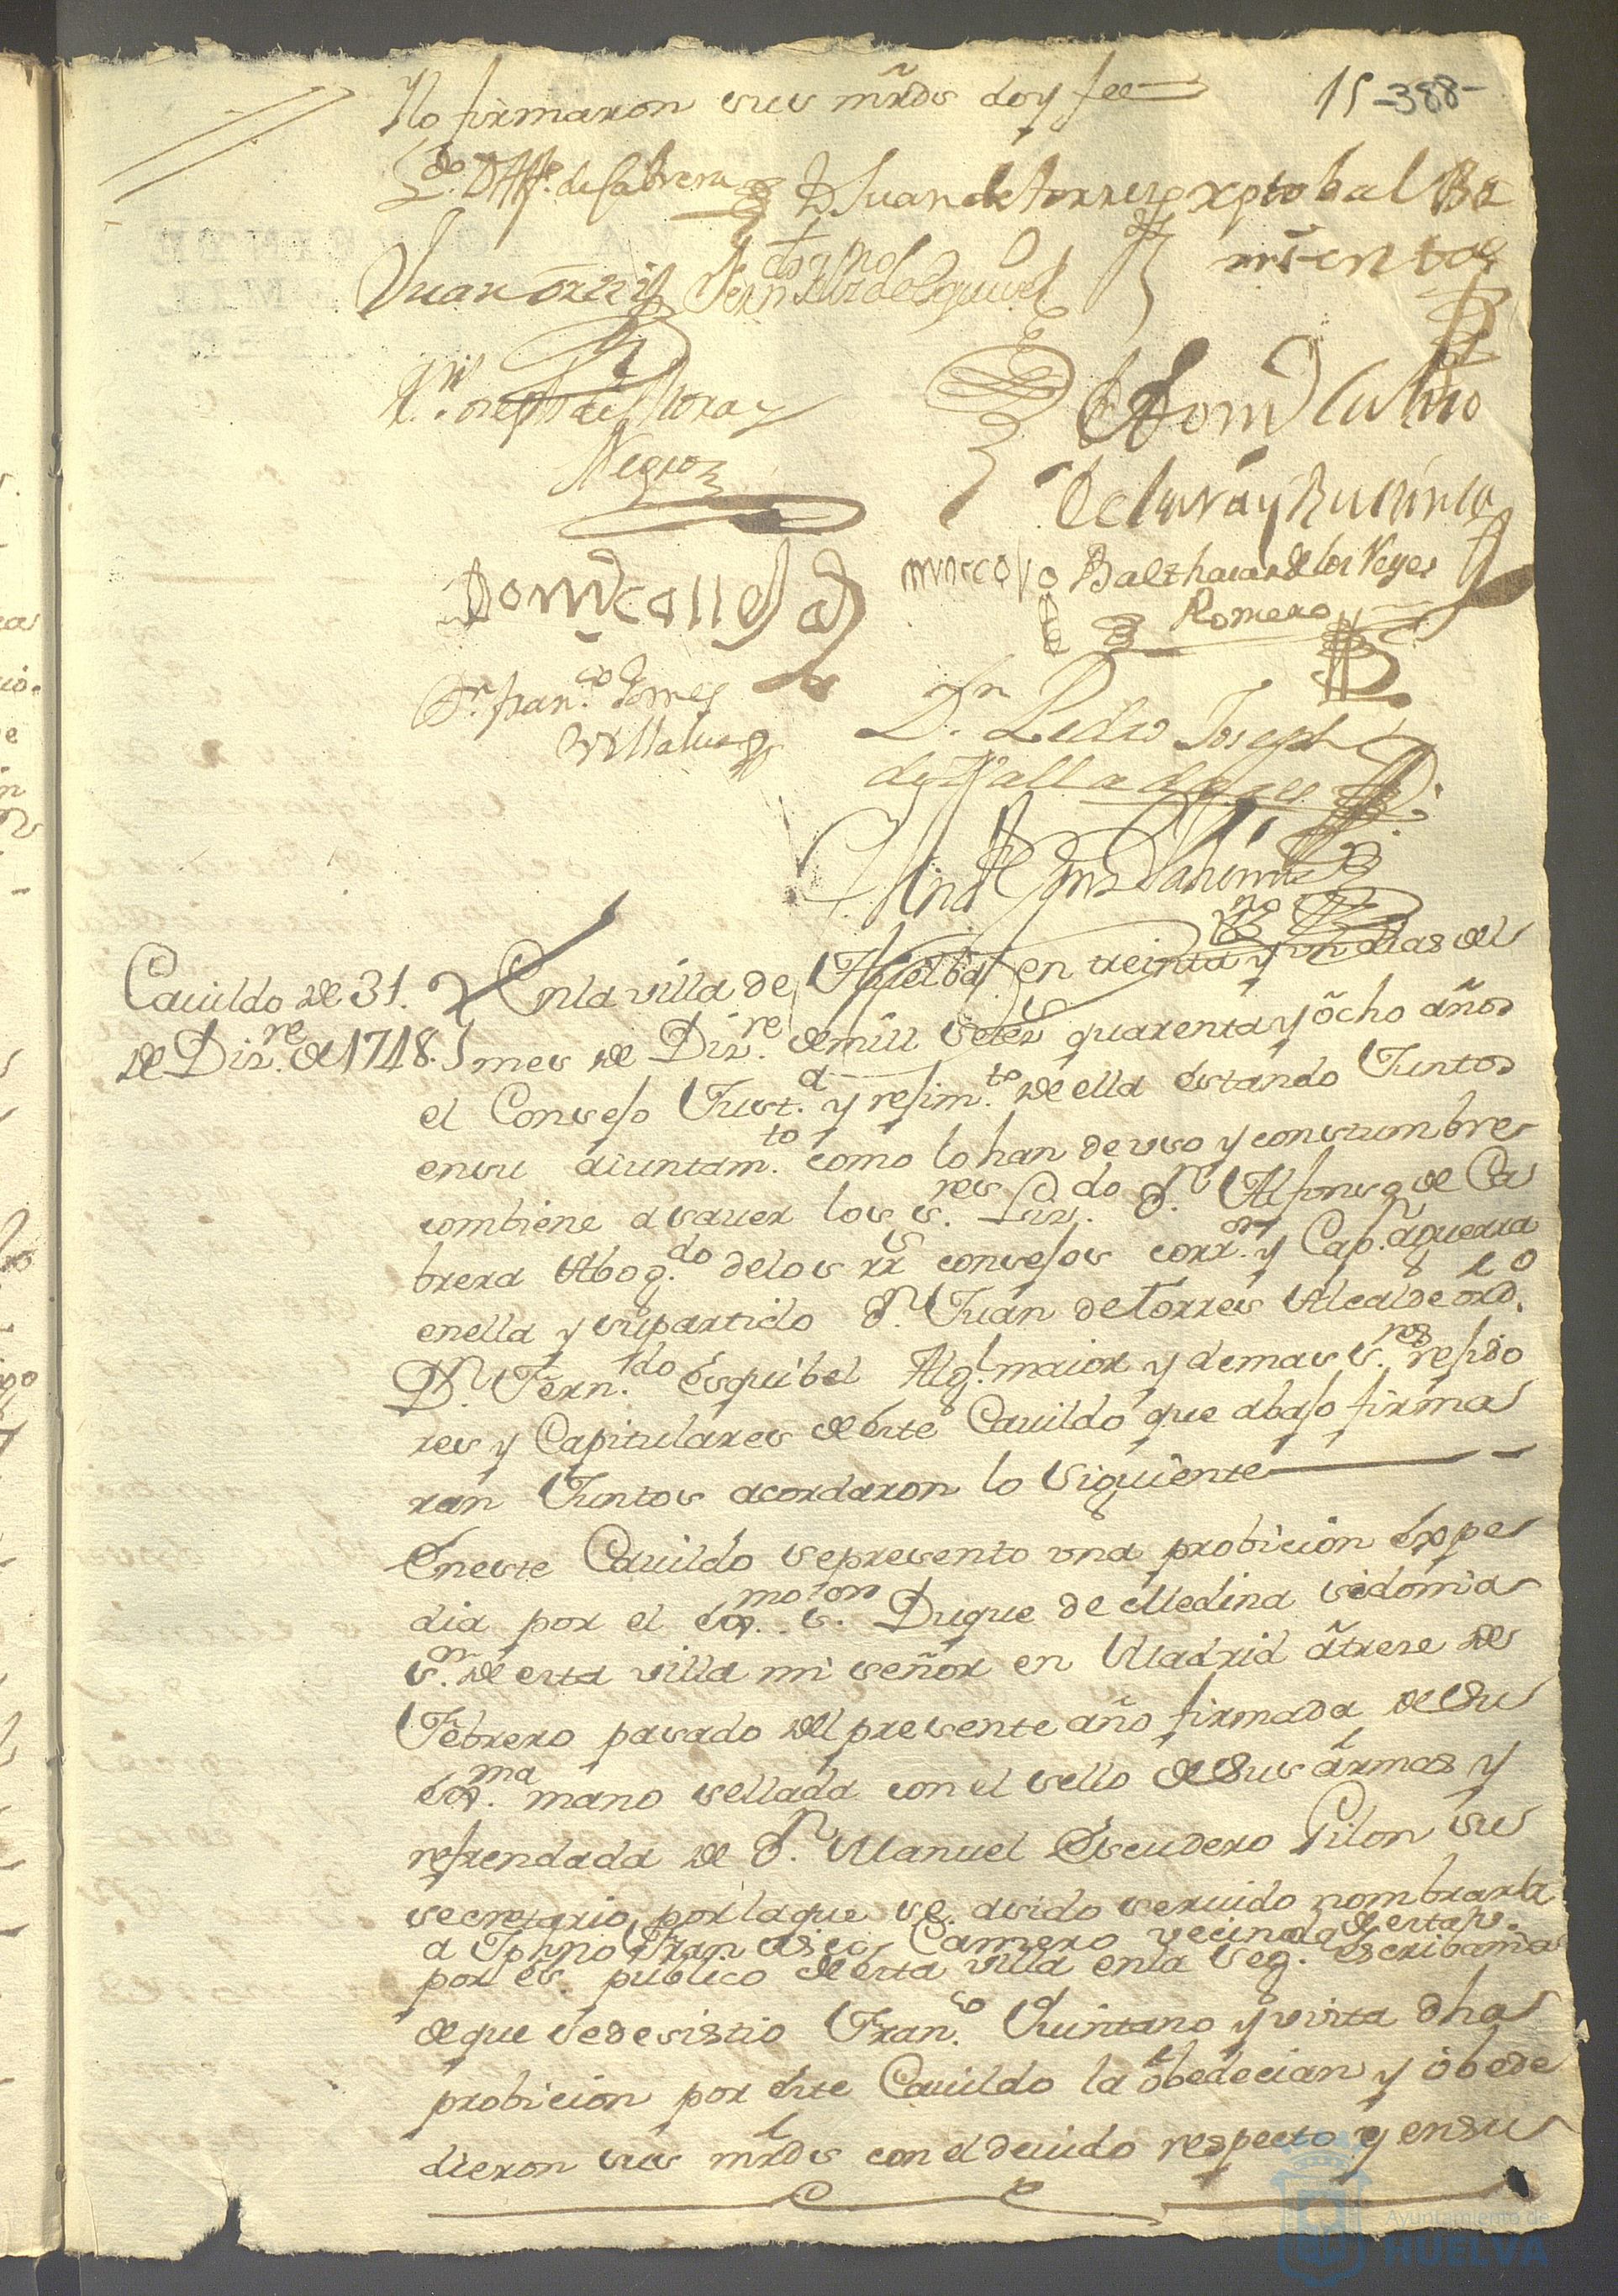 Y lo firmaron sus mrds doy fee
15 -388-
Ldo. D. Alfo. de Cabrera D Juan de torres xptobal Ba
rrientos
Juan ortiz Fernando de Esquivel
Joseph de Mora y
Negro
Domo Cubero
Marcos Balthasar de los Reyes
Romero
Domo Calles
Dn. Franco. Gomes
Villalua
Dn. Pedro Joseph
de Valladares
Cauildo de 31.
de Dizre. de 1748.
En la villa de Huelba en treinta y un dias del
mes de Dizre. de mill setezs quarenta y ocho años
el Consejo Justa. y rejimto. de ella estando Juntos
en su aiuntamto. como lo han de uso y constumbre
combiene a sauer los sres. Lizdo. Dn. Alfonso de Ca
brera Abogdo. de los rrs consejos corror. y Capn. aguerra
en ella y su partido Dn. Juan de Torres Alcalde ordo.
Dn. Ferndo. Esquibel Algl. maior y demas sres. rejido
res y Capitulares de este Cauildo que abajo firma
ran Juntos acordaron lo siguiente
En este Cauildo se presento una probicion expe
dia por el Exmo. Sor. Duque de Medina Sidonia
Sor. de esta villa mi señor en Madrid a trese de
Febrero pasado del presente año firmada de Su
Exma. mano sellada con el sello de Sus armas y
refrendada de Dn. Manuel Escudero Pilon su
secretario por la que se asido seruido nombrar
a Tphno Francisco Camero vecino de esta v.
por es. publico de esta villa en la seg. escribania
de que se desistio Franco. Quintano y vista dha
probicion por este Cauildo la obedecian y obede
dieron sus mrds con el deuido respecto y en su
Ayuntamiento de
HUELVA